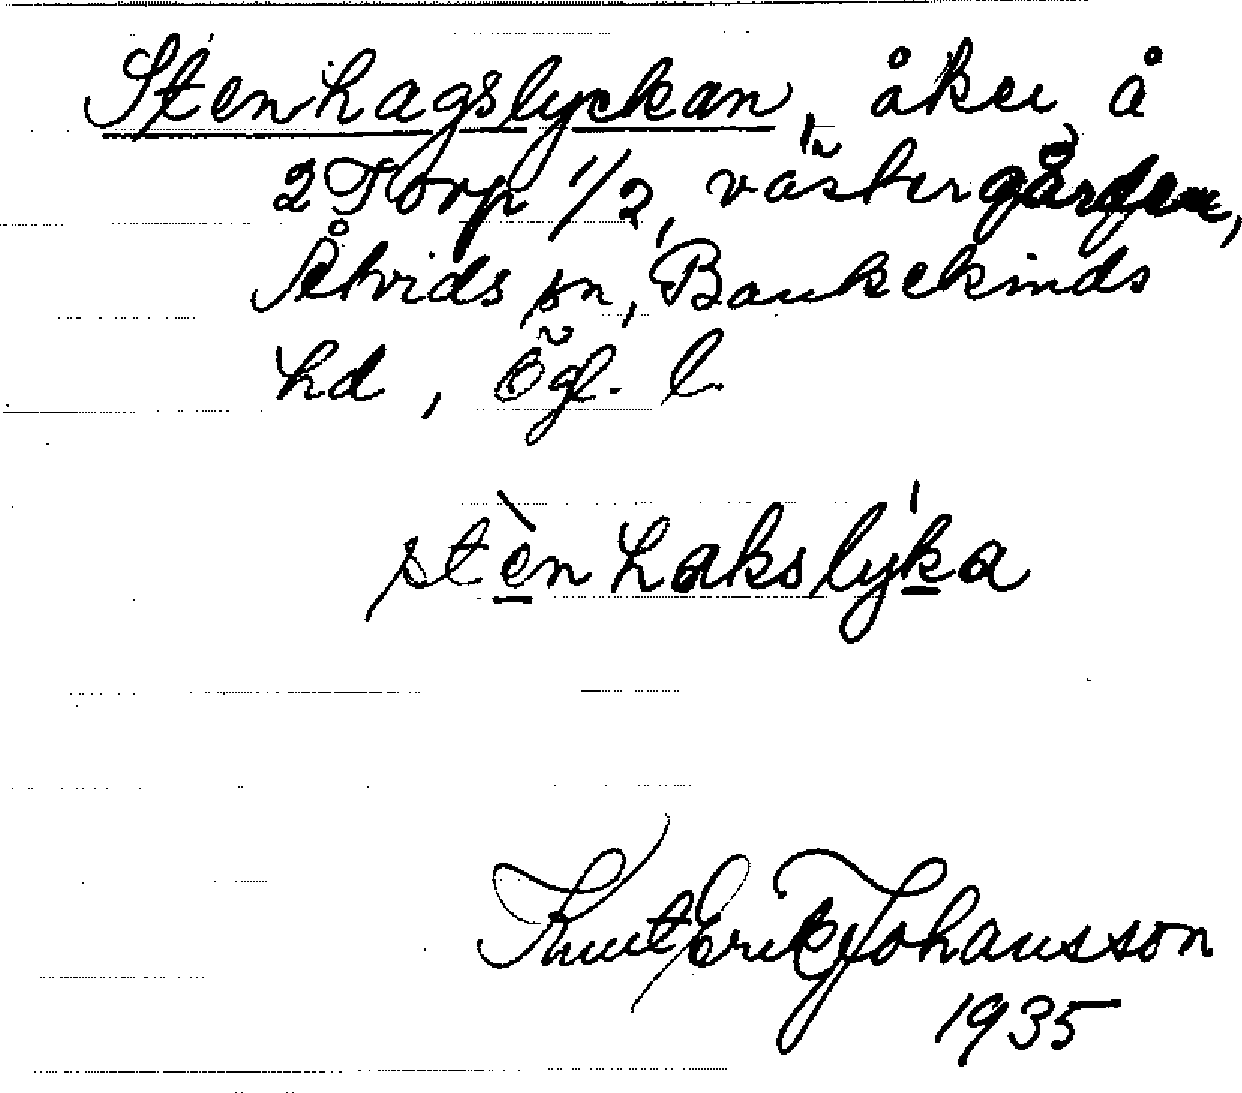 Stenhagslyckan, åker å
2 Torp 1/2, västergården,
Åtvids sn, Bankekinds
hd, Ögl. l.
stènhakslýka
Knut Erik Johansson
1935